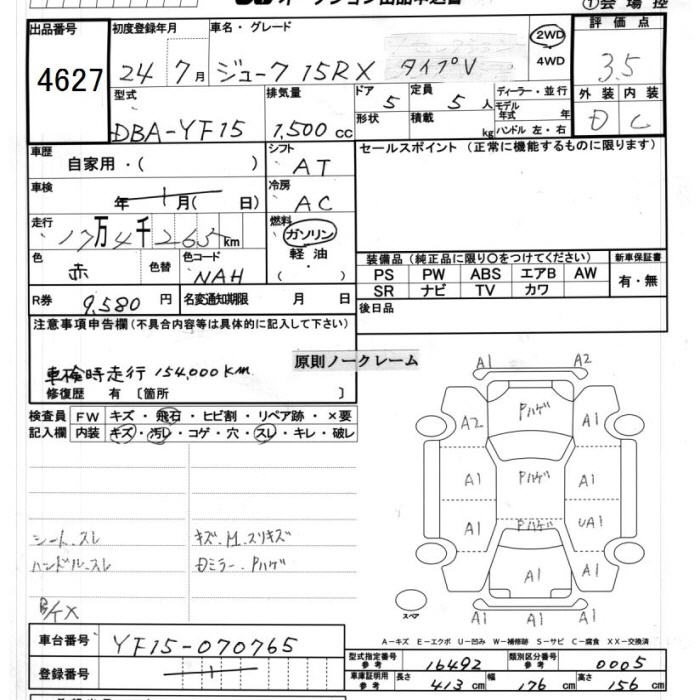 ①会場控
出品番号 4627
初度登録年月 24 7月
車名・グレード ジューク 15RX タイプV
2WD 4WD
評価点 3.5
外装 D 内装 C
型式 DBA-YF15
排気量 1,500 cc
ドア 5
形状
定員 5 人
積載 kg
ディーラー・並行
モデル年式 年
ハンドル 左・右
車歴 自家用・( )
シフト AT
セールスポイント (正常に機能するものに限ります)
車検 年 月( 日)
冷房 AC
走行 17万4千265km
燃料 ガソリン 軽油・( )
色 赤 色替
色コード NAH
装備品 (純正品に限り○をつけてください)
PS PW ABS エアB AW
SR ナビ TV カワ
新車保証書 有・無
R券 9,580 円
名変通知期限 月 日
後日品
注意事項申告欄 (不具合内容等は具体的に記入して下さい)
車検時走行 154,000km
原則ノークレーム
修復歴 有 [箇所 ]
検査員記入欄
FW キズ・飛石・ヒビ割・リペア跡・×要
内装 キズ・汚レ・コゲ・穴・スレ・キレ・破レ
シート、スレ
ハンドル、スレ
キズ、M、スリキズ
Dミラー、Pハゲ
A1 A2
Pハゲ
A2 A1
A1 Pハゲ A1
Pハゲ
A1 UA1
A1
A1 A1
A1
スペア
A-キズ E-エクボ U-凹み W-補修跡 S-サビ C-腐食 XX-交換済
車台番号 YF15-070765
登録番号
型式指定番号 参考 16492
類別区分番号 参考 0005
車庫証明用 参考 長さ 413 cm 幅 176 cm 高さ 156 cm